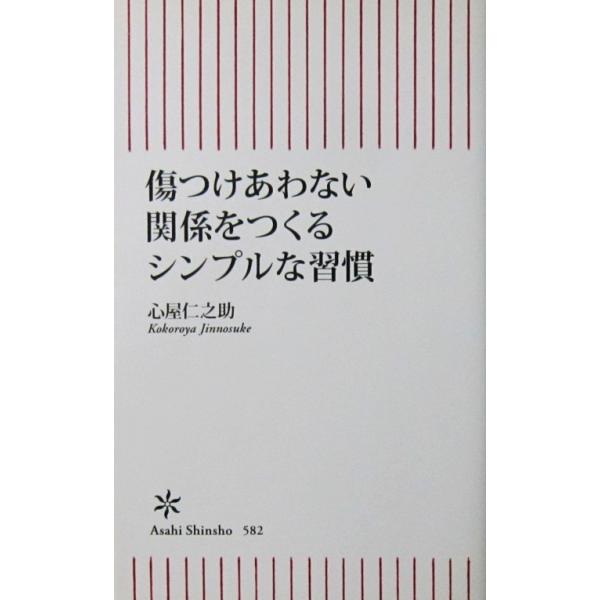 傷つけあわない
関係をつくる
シンプルな習慣
心屋仁之助
Kokoroya Jinnosuke
Asahi Shinsho 582